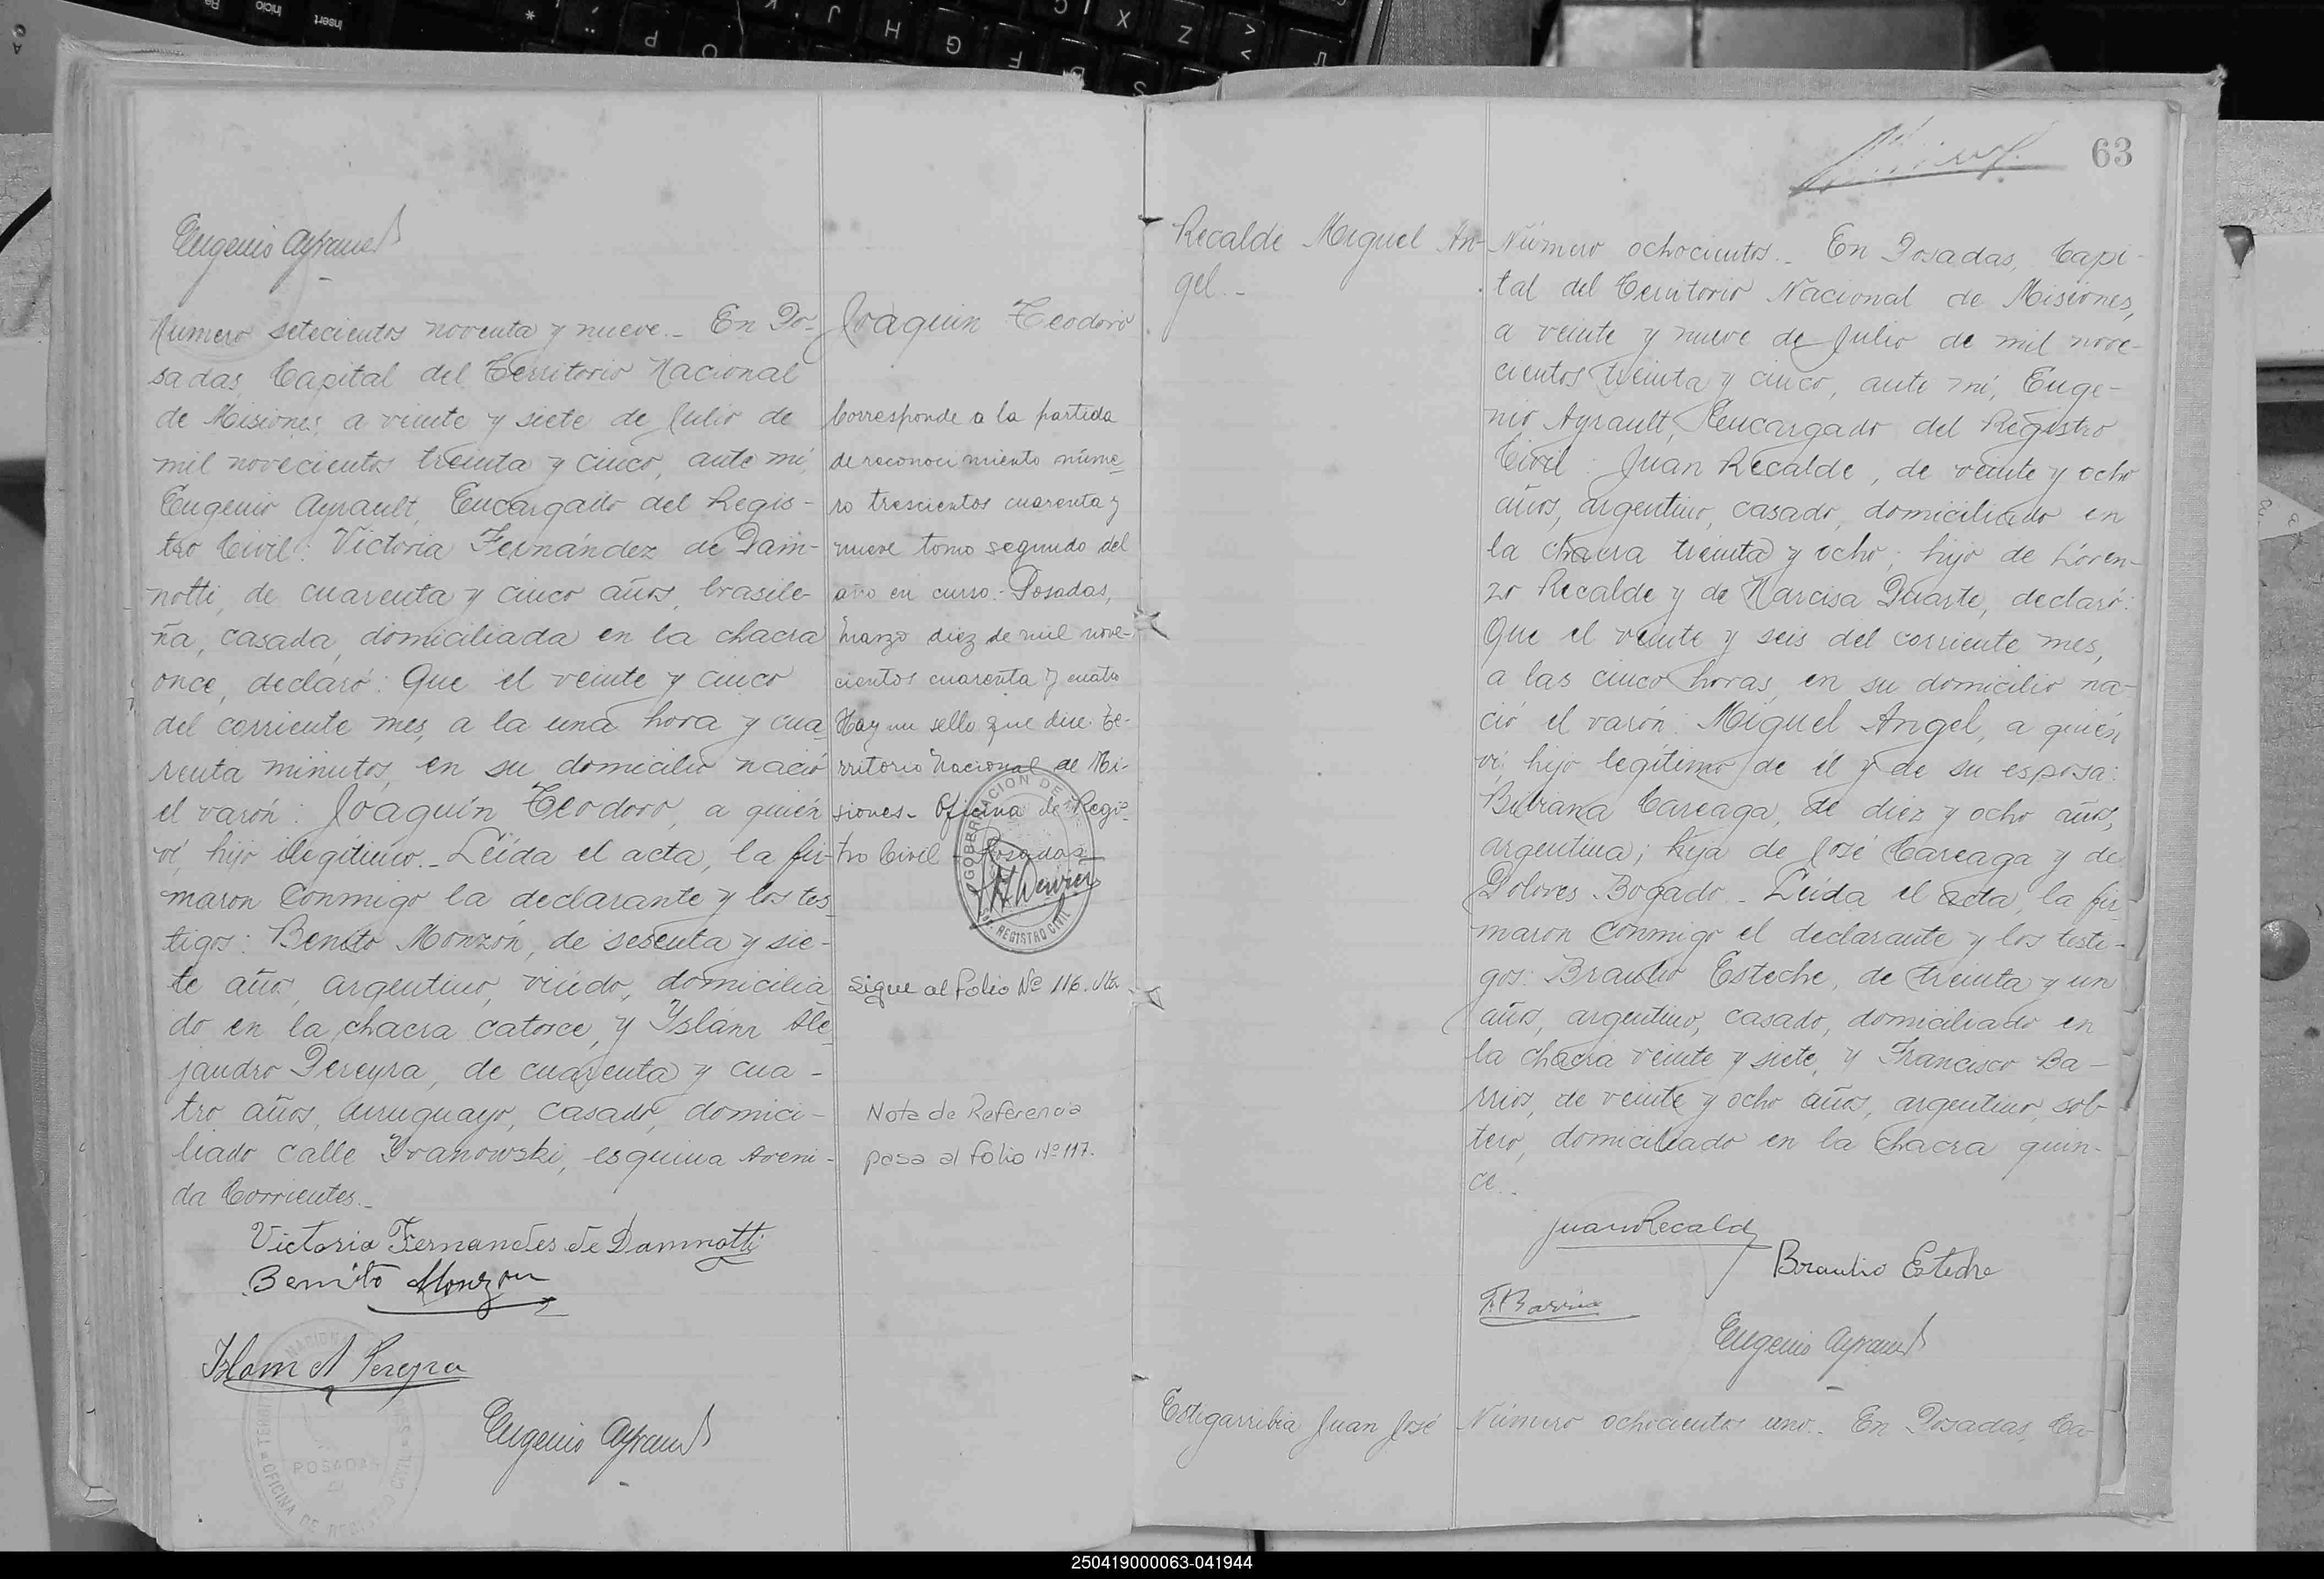 Eugenio Ayrault
Número setecientos noventa y nueve.- En Po-
sadas, Capital del Territorio Nacional
de Misiones, a veinte y siete de Julio de
mil novecientos treinta y cinco, ante mí,
Eugenio Ayrault, Encargado del Regis-
tro Civil: Victoria Fernández de Dam-
notti, de cuarenta y cinco años, brasile-
ña, casada, domiciliada en la chacra
once, declaró: Que el veinte y cinco
del corriente mes, a la una hora y cua-
renta minutos, en su domicilio nació
el varón: Joaquín Teodoro, a quién
ví, hijo ilegítimo.- Leída el acta, la fir-
maron conmigo la declarante y los tes-
tigos: Benito Monzón, de sesenta y sie-
te años, argentino, viudo, domicilia-
do en la chacra catorce, y Yslám Ale-
jandro Pereyra, de cuarenta y cua-
tro años, uruguayo, casado, domici-
liado calle Yranowski, esquina Aveni-
da Corrientes.-
Victoria Fernandes de Dammotti
Benito Monzon
Islam A Pereyra
Eugenio Ayrault
POSADAS
OFICINA DE REGISTRO CIVIL
Joaquin Teodoro
Corresponde a la partida
de reconocimiento núme-
ro trescientos cuarenta y
nueve tomo segundo del
año en curso.- Posadas,
Marzo diez de mil nove-
cientos cuarenta y cuatro
Hay un sello que dice: Te-
rritorio Nacional de Mi-
siones- Oficina de Regis-
tro Civil - Posadas-
GOBERNACION DE
REGISTRO CIVIL
Sigue al folio Nº 116.
Nota de Referencia
pasa al folio Nº 117.
63
Recalde Miguel An-
gel.-
Número ochocientos.- En Posadas, Capi-
tal del Territorio Nacional de Misiones,
a veinte y nueve de Julio de mil nove-
cientos treinta y cinco, ante mí, Euge-
nio Ayrault, Encargado del Registro
Civil: Juan Recalde, de veinte y ocho
años, argentino, casado, domiciliado en
la chacra treinta y ocho; hijo de Loren-
zo Recalde y de Narcisa Duarte, declaró:
Que el veinte y seis del corriente mes,
a las cinco horas, en su domicilio na-
ció el varón: Miguel Angel, a quién
ví, hijo legítimo de él y de su esposa:
Bibiana Careaga, de diez y ocho años,
argentina; hija de José Careaga y de
Dolores Bogado.- Leída el acta, la fir-
maron conmigo el declarante y los testi-
gos: Braulio Esteche, de treinta y un
años, argentino, casado, domiciliado en
la chacra veinte y siete, y Francisco Ba-
rrios, de veinte y ocho años, argentino, sol-
tero, domiciliado en la chacra quin-
ce.-
Juan Recalde
Braulio Esteche
F. Barrios
Eugenio Ayrault
Estigarribia Juan José
Número ochocientos uno.- En Posadas, Ca-
250419000063-041944